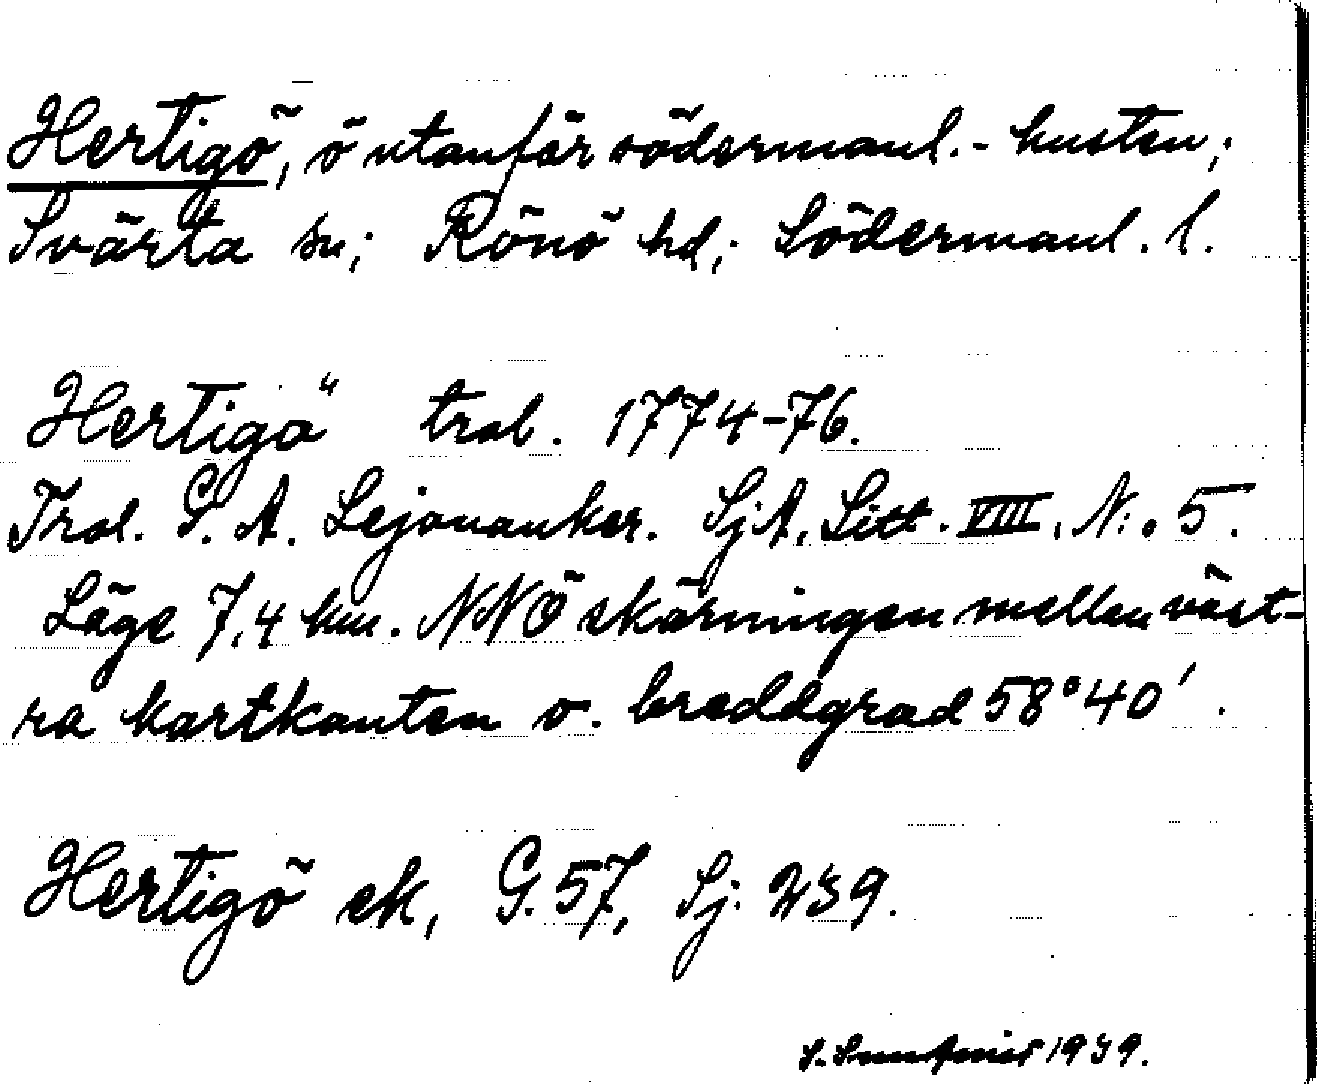 Hertigö, ö utanför södermanl.- kusten;
Svärta sn; Rönö hd; Södermanl. l.
Hertigö" trol. 1774-76.
Trol. G. A. Lejonanker. SjA, Litt. VIIII, N:o 5.
Läge 7,4 km. NNÖ skärningen mellan väst-
ra kartkanten o. breddgrad 58°40'.
Hertigö ek, G. 57, Sj. 239.
S. 1939.